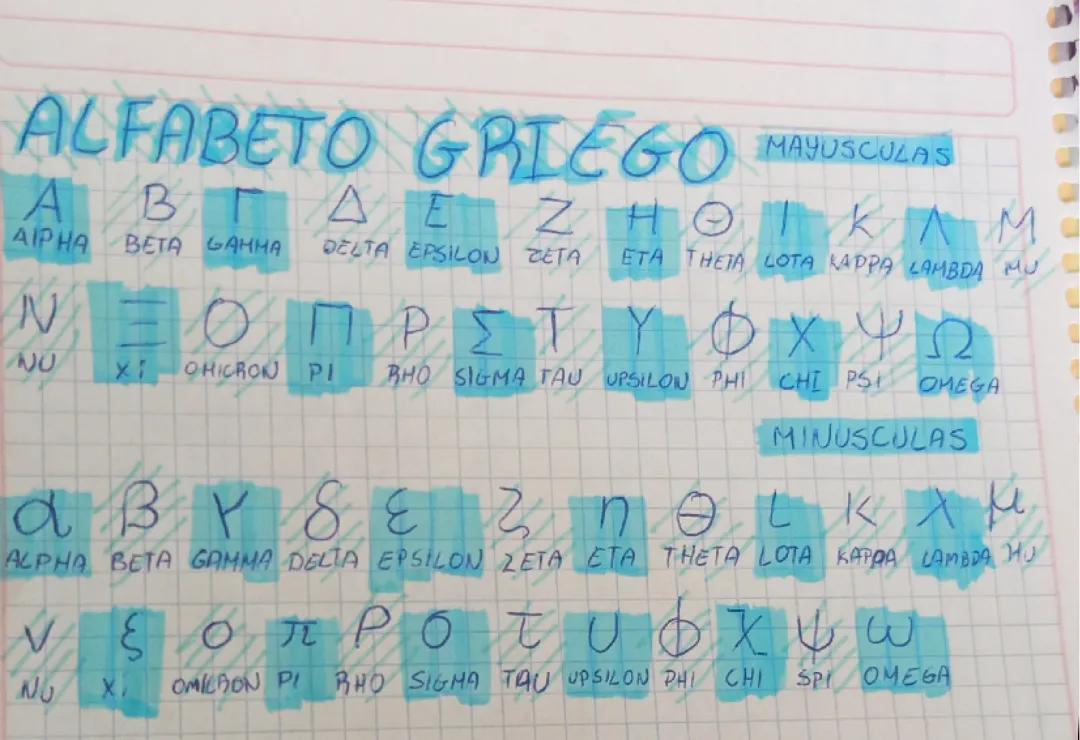 ALFABETO GRIEGO MAYUSCULAS
Α Β Γ Δ Ε Ζ Η Θ Ι Κ Λ Μ
AlPHA BETA GAMMA DELTA EPSILON ZETA ETA THETA LOTA KAPPA LAMBDA MU
Ν Ξ Ο Π Ρ Σ Τ Υ Φ Χ Ψ Ω
NU Xi OMICRON PI RHO SIGMA TAU UPSILON PHI CHI PSI OMEGA
MINUSCULAS
α β γ δ ε ζ η θ ι κ λ μ
ALPHA BETA GAMMA DELTA EPSILON ZETA ETA THETA LOTA KAPPA LAMBDA MU
ν ξ ο π ρ σ τ υ φ χ ψ ω
NU Xi OMICRON PI RHO SIGMA TAU UPSILON PHI CHI SPI OMEGA